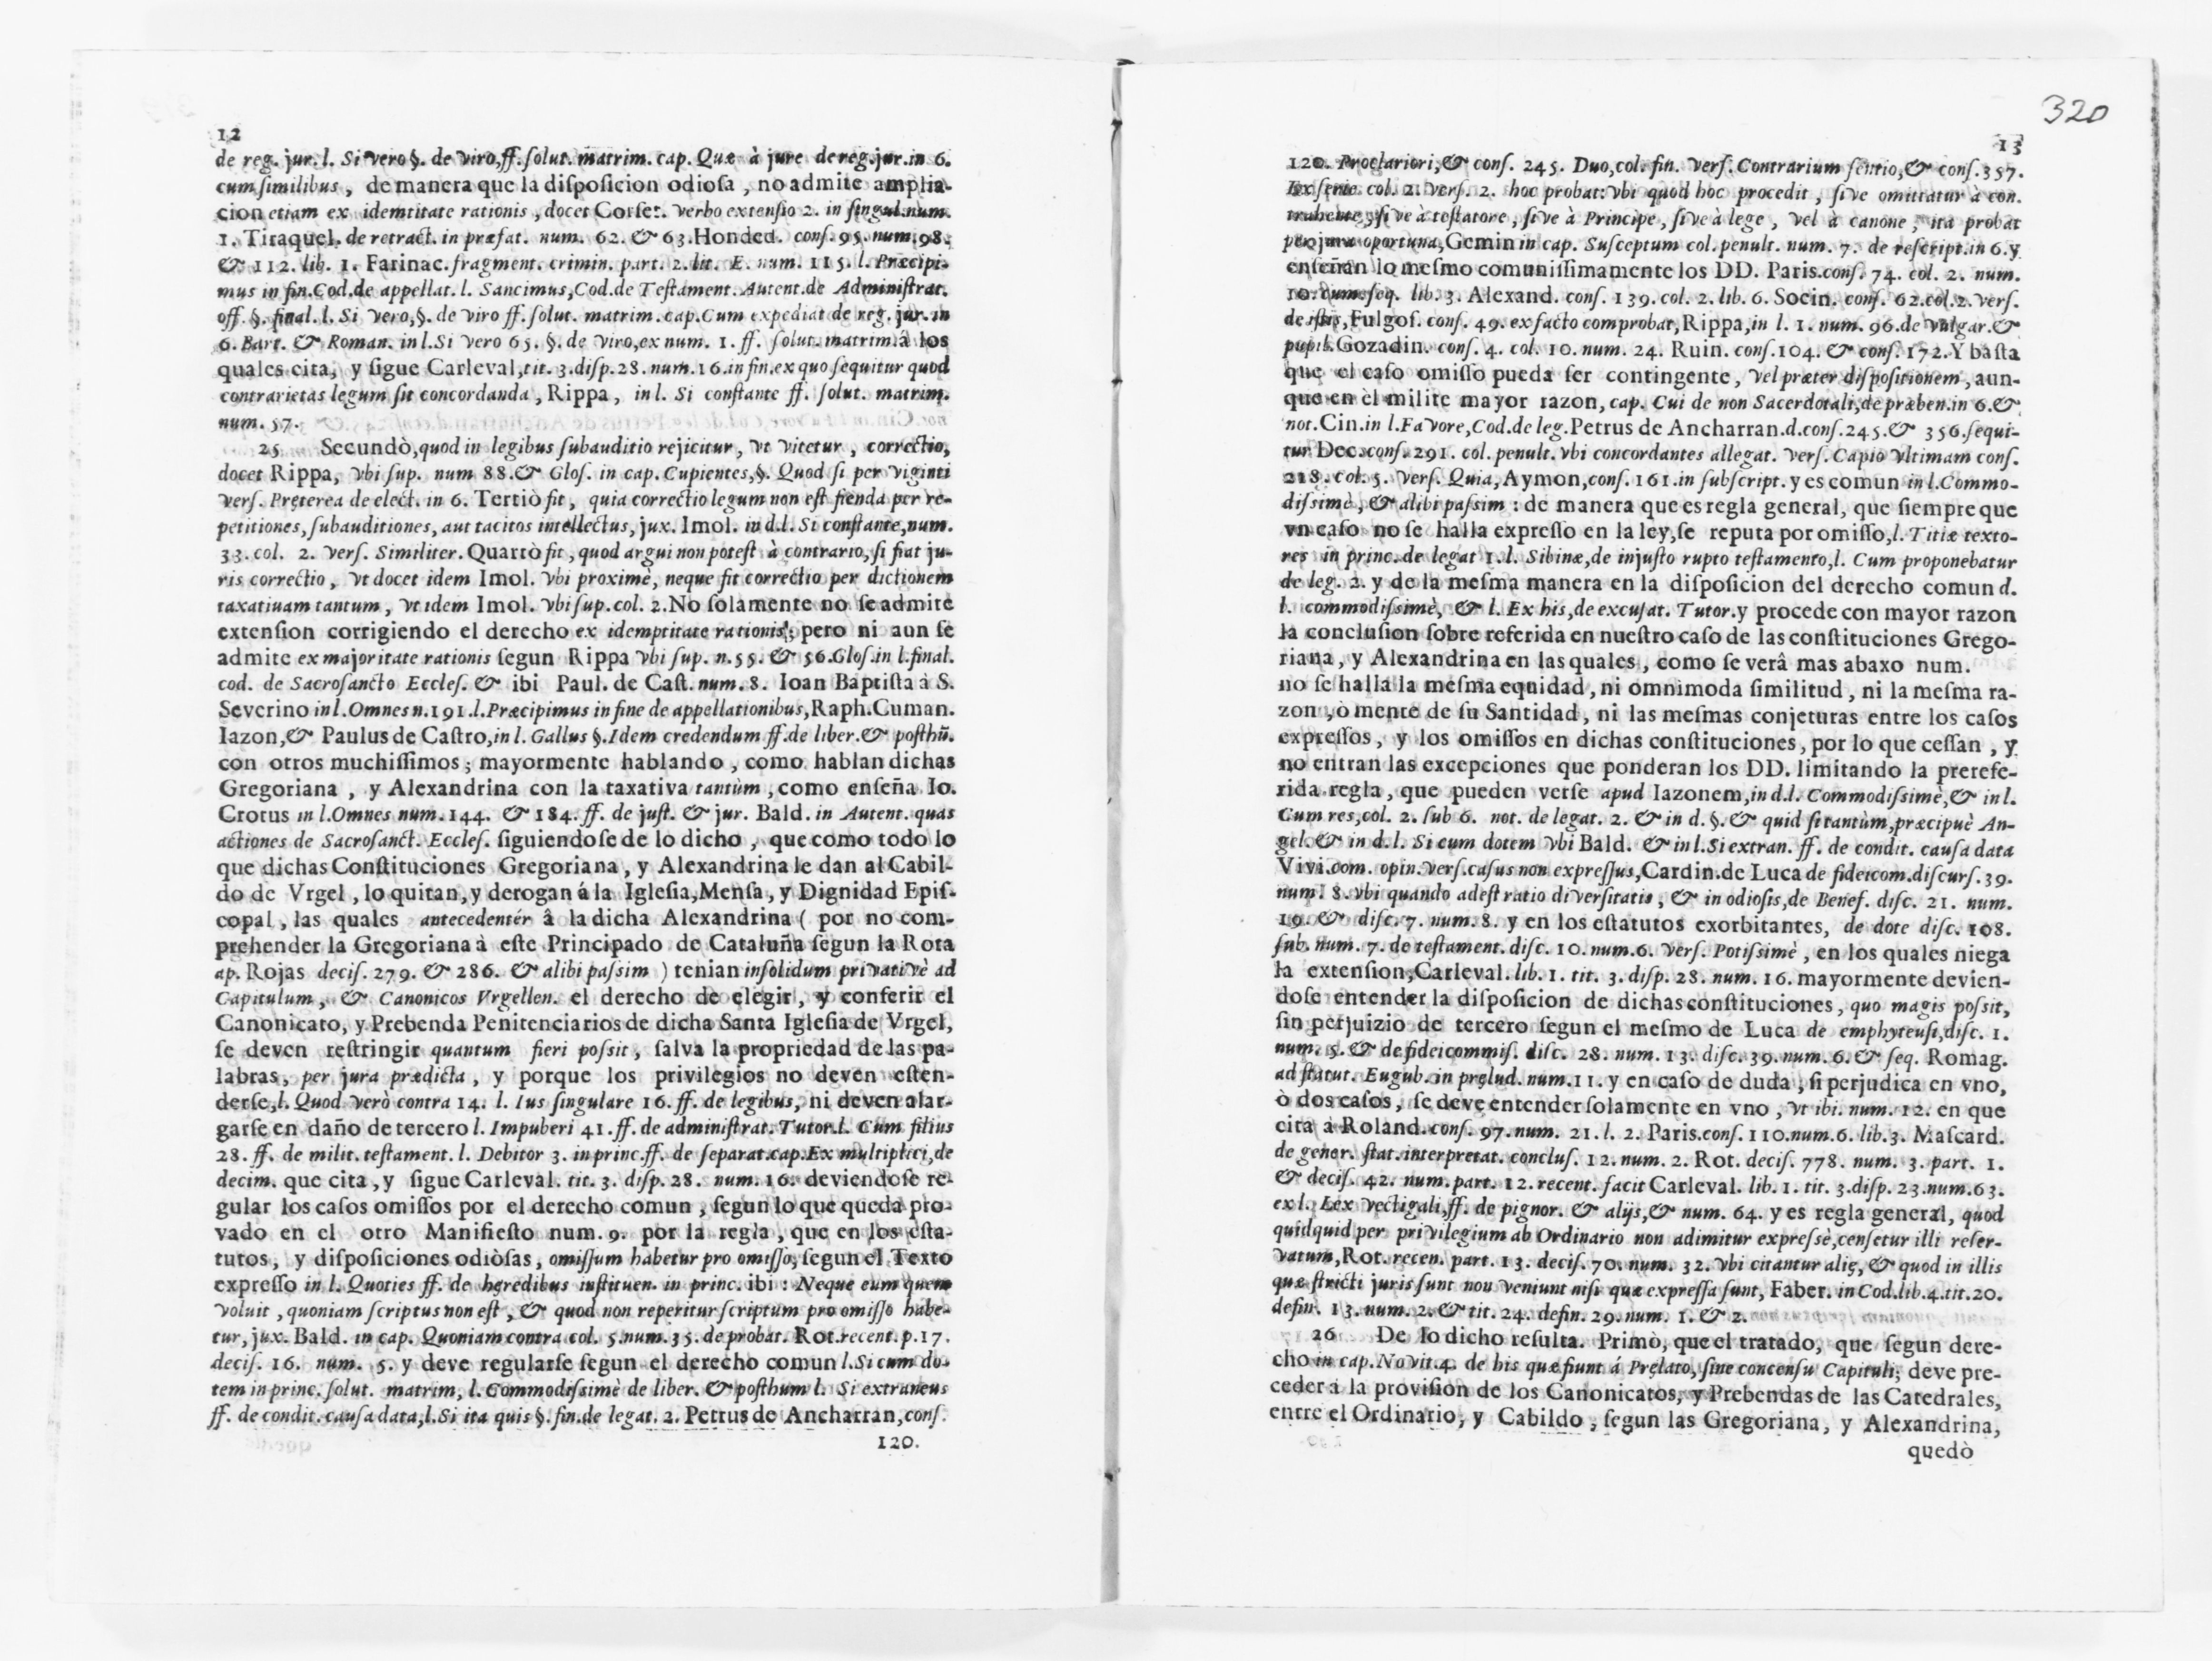 12
de reg. jur. l. Si vero §. de viro, ff. ſolut. matrim. cap. Quæ à jure de reg. jur. in 6.
cum ſimilibus, de manera que la diſpoſicion odioſa, no admite amplia-
cion etiam ex idemtitate rationis, docet Corſet. verbo extenſio 2. in ſingul. num.
1. Tiraquel. de retract. in præfat. num. 62. & 63. Honded. conſ. 95. num. 98.
& 112. lib. 1. Farinac. fragment. crimin. part. 2. lit. E. num. 115. l. Præcipi-
mus in fin. Cod. de appellat. l. Sancimus, Cod. de Teſtament. Autent. de Adminiſtrat.
off. §. final. l. Si vero, §. de viro ff. ſolut. matrim. cap. Cum expediat de reg. jur. in
6. Bart. & Roman. in l. Si vero 65. §. de viro, ex num. 1. ff. ſolut. matrim. â los
quales cita, y ſigue Carleval, tit. 3. diſp. 28. num. 16. in fin. ex quo ſequitur quod
contrarietas legum ſit concordanda, Rippa, in l. Si conſtante ff. ſolut. matrim.
num. 57.
25 Secundò, quod in legibus ſubauditio rejicitur, vt vitetur, correctio,
docet Rippa, vbi ſup. num 88. & Gloſ. in cap. Cupientes, §. Quod ſi per viginti
verſ. Pręterea de elect. in 6. Tertiò fit, quia correctio legum non eſt fienda per re-
petitiones, ſubauditiones, aut tacitos intellectus, jux. Imol. in d. l. Si conſtante, num.
33. col. 2. verſ. Similiter. Quartò fit, quod argui non poteſt à contrario, ſi fiat ju-
ris correctio, vt docet idem Imol. vbi proximè, neque fit correctio per dictionem
taxatiuam tantum, vt idem Imol. vbi ſup. col. 2. No ſolamente no ſe admite
extenſion corrigiendo el derecho ex idemptitate rationis; pero ni aun ſe
admite ex majoritate rationis ſegun Rippa vbi ſup. n. 55. & 56. Gloſ. in l. final.
cod. de Sacroſancto Eccleſ. & ibi Paul. de Caſt. num. 8. Ioan Baptiſta à S.
Severino in l. Omnes n. 191. l. Præcipimus in fine de appellationibus, Raph. Cuman.
Iazon, & Paulus de Caſtro, in l. Gallus §. Idem credendum ff. de liber. & poſthũ.
con otros muchiſſimos; mayormente hablando, como hablan dichas
Gregoriana, y Alexandrina con la taxativa tantùm, como enſeña Io.
Crotus in l. Omnes num. 144. & 184. ff. de juſt. & jur. Bald. in Autent. quas
actiones de Sacroſanct. Eccleſ. ſiguiendoſe de lo dicho, que como todo lo
que dichas Conſtituciones Gregoriana, y Alexandrina le dan al Cabil-
do de Vrgel, lo quitan, y derogan á la Igleſia, Menſa, y Dignidad Epiſ-
copal, las quales antecedentér â la dicha Alexandrina ( por no com-
prehender la Gregoriana à eſte Principado de Cataluña ſegun la Rota
ap. Rojas deciſ. 279. & 286. & alibi paſsim ) tenian inſolidum privativè ad
Capitulum, & Canonicos Vrgellen. el derecho de elegir, y conferir el
Canonicato, y Prebenda Penitenciarios de dicha Santa Igleſia de Vrgel,
ſe deven reſtringir quantum fieri poſsit, ſalva la propriedad de las pa-
labras, per jura prædicta, y porque los privilegios no deven eſten-
derſe, l. Quod verò contra 14. l. Ius ſingulare 16. ff. de legibus, ni deven alar-
garſe en daño de tercero l. Impuberi 41. ff. de adminiſtrat. Tutor. l. Cum filius
28. ff. de milit. teſtament. l. Debitor 3. in princ. ff. de ſeparat. cap. Ex multiplici, de
decim. que cita, y ſigue Carleval. tit. 3. diſp. 28. num. 16. deviendoſe re-
gular los caſos omiſſos por el derecho comun, ſegun lo que queda pro-
vado en el otro Manifieſto num. 9. por la regla, que en los eſta-
tutos, y diſpoſiciones odiòſas, omiſſum habetur pro omiſſo, ſegun el Texto
expreſſo in l. Quoties ff. de hęredibus inſtituen. in princ. ibi: Neque eum quem
voluit, quoniam ſcriptus non eſt, & quod non reperitur ſcriptum pro omiſſo habe-
tur, jux. Bald. in cap. Quoniam contra col. 5. num. 35. de probat. Rot. recent. p. 17.
deciſ. 16. num. 5. y deve regularſe ſegun el derecho comun l. Si cum do-
tem in princ. ſolut. matrim, l. Commodiſsimè de liber. & poſthum l. Si extraneus
ff. de condit. cauſa data, l. Si ita quis §. fin. de legat. 2. Petrus de Ancharran, conſ.
120.
320
13
120. Proclariori, & conſ. 245. Duo, col. fin. verſ. Contrarium ſentio, & conſ. 357.
col. 2. verſ. 2. hoc probat: vbi quod hoc procedit, ſive omittatur à con-
trahente, ſive à teſtatore, ſive à Principe, ſive à lege, vel à canone, ita probat
per jura oportuna, Gemin in cap. Suſceptum col. penult. num. 7. de reſcript. in 6. y
enſeñan lo meſmo comuniſſimamente los DD. Paris. conſ. 74. col. 2. num.
10. cum ſeq. lib. 3. Alexand. conſ. 139. col. 2. lib. 6. Socin. conſ. 62. col. 2. verſ.
de iſtis, Fulgoſ. conſ. 49. ex facto comprobat, Rippa, in l. 1. num. 96. de vulgar. &
pupil. Gozadin. conſ. 4. col. 10. num. 24. Ruin. conſ. 104. & conſ. 172. Y baſta
que el caſo omiſſo pueda ſer contingente, vel præter diſpoſitionem, aun-
que en èl milite mayor razon, cap. Cui de non Sacerdotali, de præben. in 6. &
not. Cin. in l. Favore, Cod. de leg. Petrus de Ancharran. d. conſ. 245. & 356. ſequi-
tur Dec. conſ. 291. col. penult. vbi concordantes allegat. verſ. Capio vltimam conſ.
218. col. 5. verſ. Quia, Aymon, conſ. 161. in ſubſcript. y es comun in l. Commo-
diſsimè, & alibi paſsim: de manera que es regla general, que ſiempre que
vn caſo no ſe halla expreſſo en la ley, ſe reputa por omiſſo, l. Titiæ texto-
res in princ. de legat 1. l. Sibinæ, de injuſto rupto teſtamento, l. Cum proponebatur
de leg. 2. y de la meſma manera en la diſpoſicion del derecho comun d.
l. commodiſsimè, & l. Ex his, de excuſat. Tutor. y procede con mayor razon
la concluſion ſobre referida en nueſtro caſo de las conſtituciones Grego-
riana, y Alexandrina en las quales, como ſe verâ mas abaxo num.
no ſe halla la meſma equidad, ni omnimoda ſimilitud, ni la meſma ra-
zon, ò mente de ſu Santidad, ni las meſmas conjeturas entre los caſos
expreſſos, y los omiſſos en dichas conſtituciones, por lo que ceſſan, y
no entran las excepciones que ponderan los DD. limitando la prerefe-
rida regla, que pueden verſe apud Iazonem, in d. l. Commodiſsimè, & in l.
Cum res, col. 2. ſub 6. not. de legat. 2. & in d. §. & quid ſi tantùm, præcipuè An-
gel. & in d. l. Si cum dotem vbi Bald. & in l. Si extran. ff. de condit. cauſa data
Vivi. com. opin. verſ. caſus non expreſſus, Cardin. de Luca de fideicom. diſcurſ. 39.
num. 8. vbi quando adeſt ratio diverſitatis, & in odioſis, de Benef. diſc. 21. num.
19. & diſc. 7. num. 8. y en los eſtatutos exorbitantes, de dote diſc. 108.
ſub. num. 7. de teſtament. diſc. 10. num. 6. verſ. Potiſsimè, en los quales niega
la extenſion, Carleval. lib. 1. tit. 3. diſp. 28. num. 16. mayormente devien-
doſe entender la diſpoſicion de dichas conſtituciones, quo magis poſsit,
ſin perjuizio de tercero ſegun el meſmo de Luca de emphyteuſi, diſc. 1.
num. 5. & de fideicommiſ. diſc. 28. num. 13. diſc. 39. num. 6. & ſeq. Romag.
ad ſtatut. Eugub. in pręlud. num. 11. y en caſo de duda, ſi perjudica en vno,
ò dos caſos, ſe deve entender ſolamente en vno, vt ibi. num. 12. en que
cita à Roland. conſ. 97. num. 21. l. 2. Paris. conſ. 110. num. 6. lib. 3. Maſcard.
de gener. ſtat. interpretat. concluſ. 12. num. 2. Rot. deciſ. 778. num. 3. part. 1.
& deciſ. 42. num. part. 12. recent. facit Carleval. lib. 1. tit. 3. diſp. 23. num. 63.
ex l. Lex vectigali, ff. de pignor. & alijs, & num. 64. y es regla general, quod
quidquid per privilegium ab Ordinario non adimitur expreſsè, cenſetur illi reſer-
vatum, Rot. recen. part. 13. deciſ. 70. num. 32. vbi citantur alię, & quod in illis
quæ ſtricti juris ſunt non veniunt niſi quæ expreſſa ſunt, Faber. in Cod. lib. 4. tit. 20.
defin. 13. num. 2. & tit. 24. defin. 29. num. 1. & 2.
26 De lo dicho reſulta. Primò, que el tratado, que ſegun dere-
cho in cap. Novit. 4. de his quæ fiunt á Pręlato, ſine concenſu Capituli; deve pre-
ceder á la proviſion de los Canonicatos, y Prebendas de las Catedrales,
entre el Ordinario, y Cabildo, ſegun las Gregoriana, y Alexandrina,
quedò